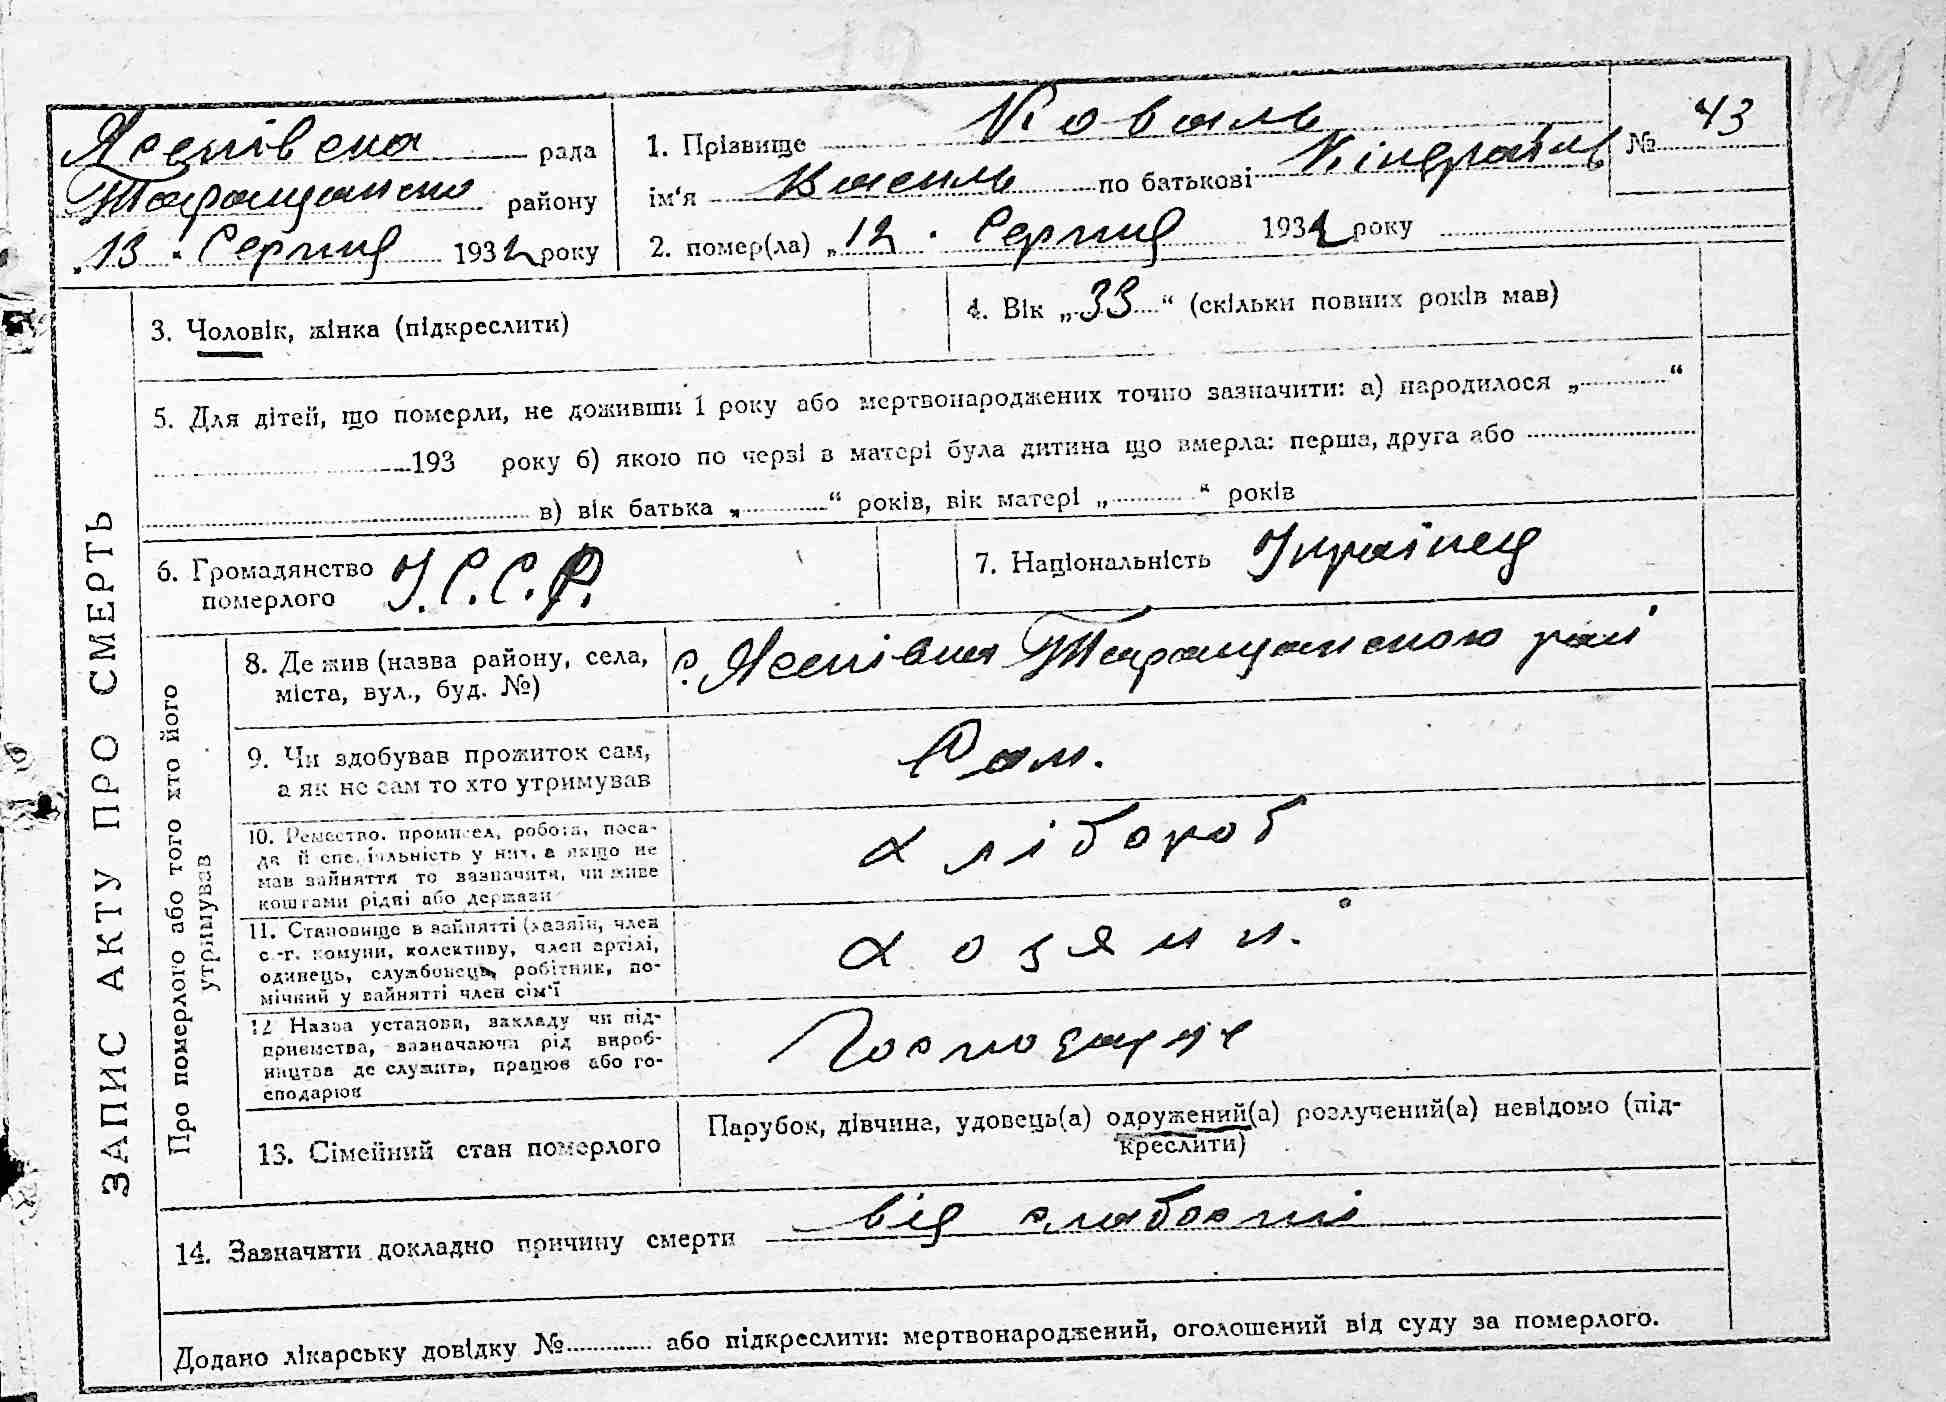 12
149
Ясенівська рада
Таращансько району
„13" Серпня 1932 року
1. Прізвище Коваль
ім'я Василь по батькові
2. помер(ла) „12" Серпня 1932 року
№ 43
ЗАПИС АКТУ ПРО СМЕРТЬ
3. Чоловік, жінка (підкреслити)
4. Вік „33" (скільки повних років мав)
5. Для дітей, що померли, не доживши 1 року або мертвонароджених точно зазначити: а) народилося „ “
193 року б) якою по черзі в матері була дитина що вмерла: перша, друга або
в) вік батька „ “ років, вік матері „ “ років
6. Громадянство
померлого
У.С.С.Р.
7. Національність Українец
Про померлого або того хто його
утримував
8. Де жив (назва району, села,
міста, вул., буд. №)
с. Ясенівка Таращанською рай
9. Чи здобував прожиток сам,
а як не сам то хто утримував
Сам.
10. Ремество, промисел, робота, поса-
да й спеціяльність у них, а якщо не
мав зайняття то зазначити, чи живе
коштами рідні або держави
Хлібороб
11. Становище в зайнятті (хазяїн, член
с.-г. комуни, колективу, член артілі,
одинець, службовець, робітник, по-
мічний у зайнятті член сім'ї
Хозяин.
12 Назва установи, закладу чи під-
приємства, зазначаючи рід вироб-
ництва де служить, працює або го-
сподарює
13. Сімейний стан померлого
Парубок, дівчина, удовець(а) одружений(а) розлучений(а) невідомо (під-
креслити)
14. Зазначити докладно причину смерти від слабости
Додано лікарську довідку № або підкреслити: мертвонароджений, оголошений від суду за померлого.